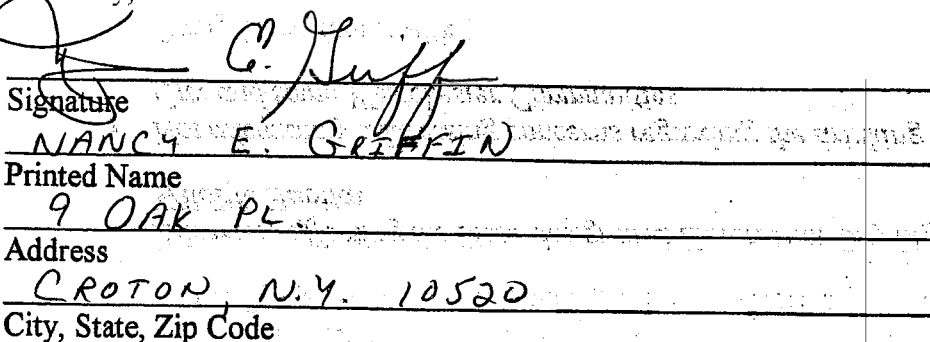 Signature
NANCY E. GRIFFIN
Printed Name
9 OAK PL.
Address
CROTON, N.Y. 10520
City, State, Zip Code